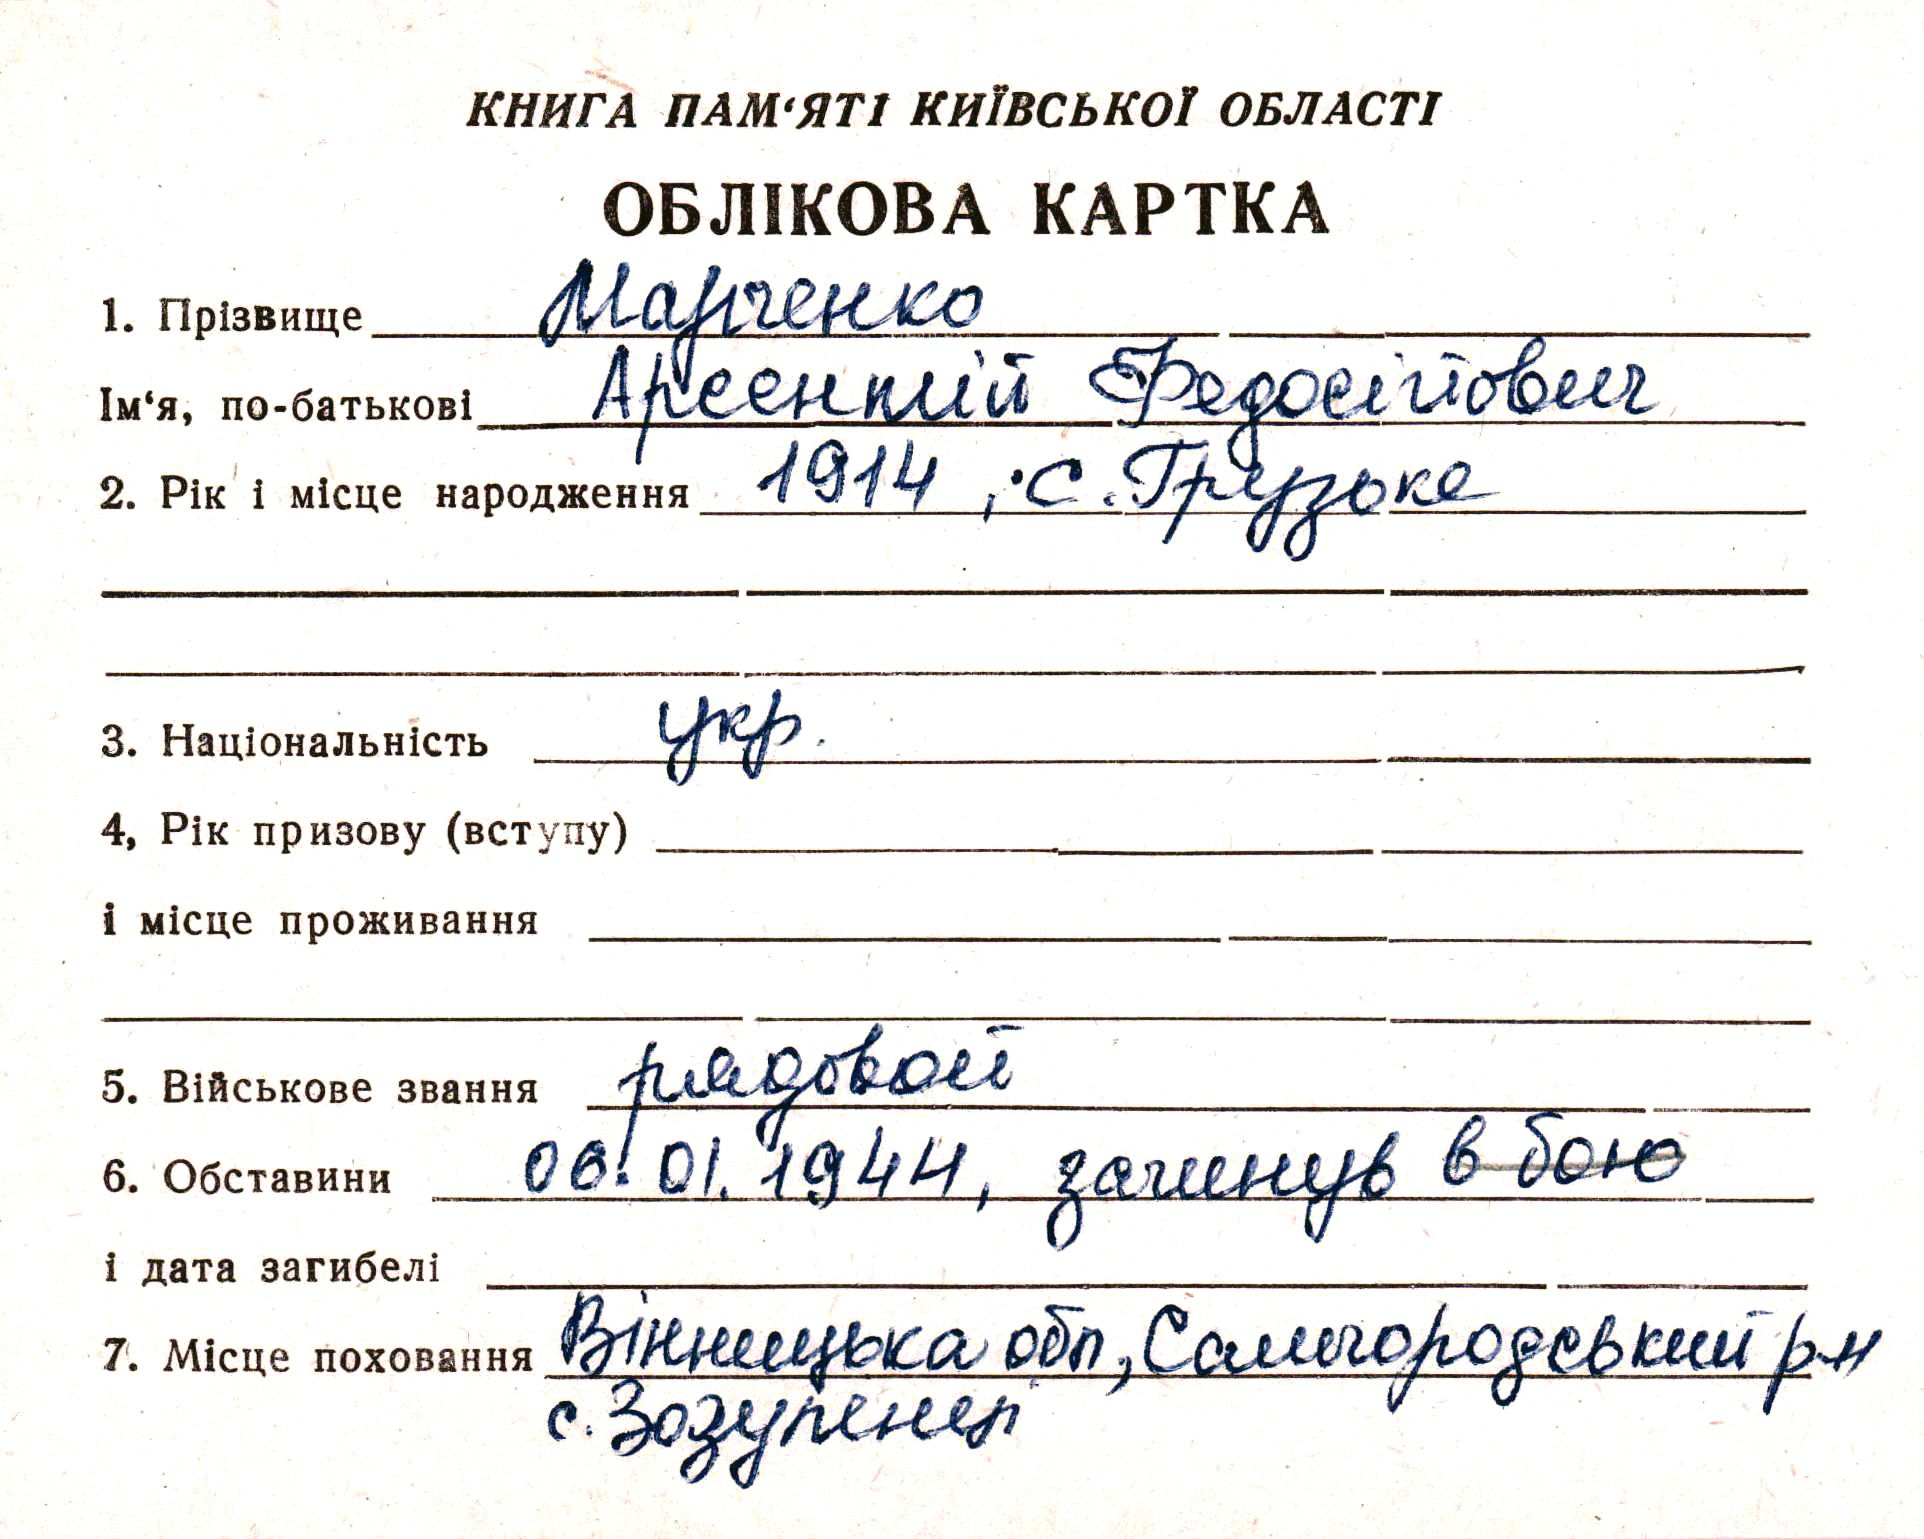 КНИГА ПАМ‘ЯТІ КИЇВСЬКОЇ ОБЛАСТІ
ОБЛІКОВА КАРТКА
1. Прізвище Марченко
Ім‘я, по-батькові Арсентій Федосійович
2. Рік і місце народження 1914, с. Грузьке
3. Національність укр.
4, Рік призову (вступу)
і місце проживання
5. Військове звання рядовой
6. Обставини 06.01.1944, загинув в бою
і дата загибелі
7. Місце поховання Вінницька обл, Самгородський р-н
с. Зозулинці